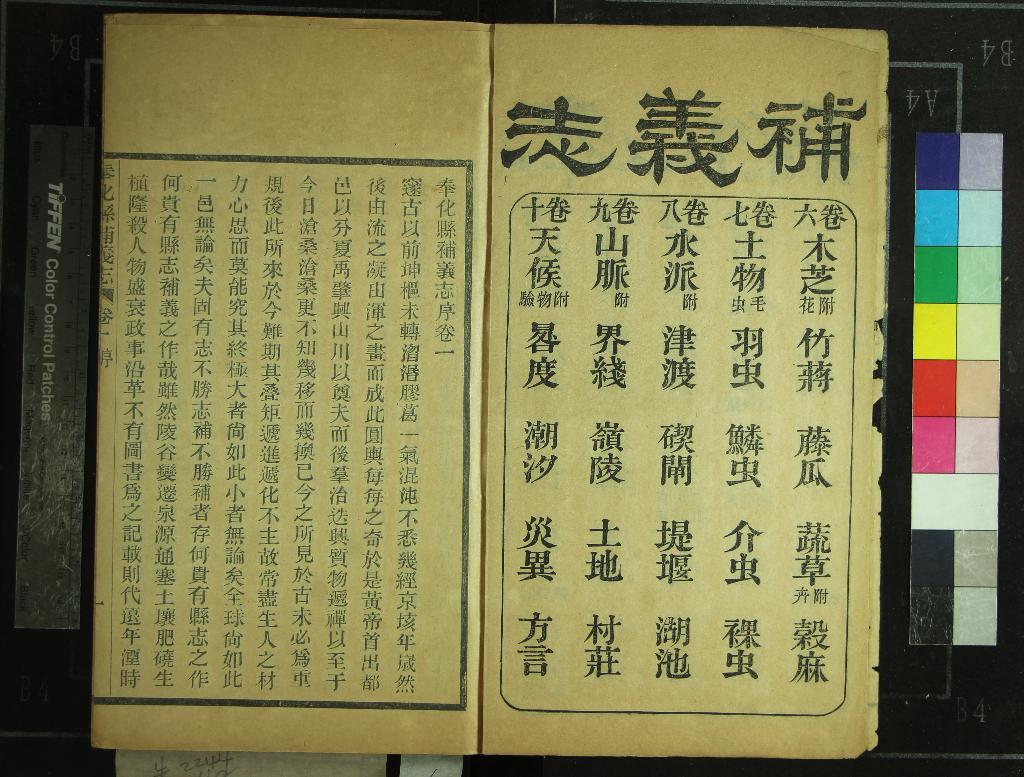 補義志
卷六 木芝附花 竹蔣 藤瓜 蔬草附卉 穀麻
卷七 土物毛虫 羽虫 鱗虫 介虫 裸虫
卷八 水派附 津渡 碶閘 堤堰 湖池
卷九 山脈附 界綫 嶺陵 土地 村莊
卷十 天候附物驗 晷度 潮汐 災異 方言
奉化縣補義志序卷一
邃古以前坤樞未轉溜滑膠葛一氣混沌不悉幾經京垓年歲然
後由流之凝由渾之畫而成此圓輿每每之奇於是黃帝首出都
邑以分夏禹肇興山川以奠夫而後羣治迭興質物遞禪以至于
今日滄桑滄桑更不知幾移而幾換已今之所見於古未必爲重
規後此所來於今難期其叠矩遞進遞化不主故常盡生人之材
力心思而莫能究其終極大者尙如此小者無論矣全球尙如此
一邑無論矣夫固有志不勝志補不勝補者存何貴有縣志之作
何貴有縣志補義之作哉雖然陵谷變遷泉源通塞土壤肥磽生
植隆殺人物盛衰政事沿革不有圖書爲之記載則代遠年湮時
奉化縣補義志 卷一 序
一
TIFFEN Color Control Patches
B4
B4
A4
B4
B4